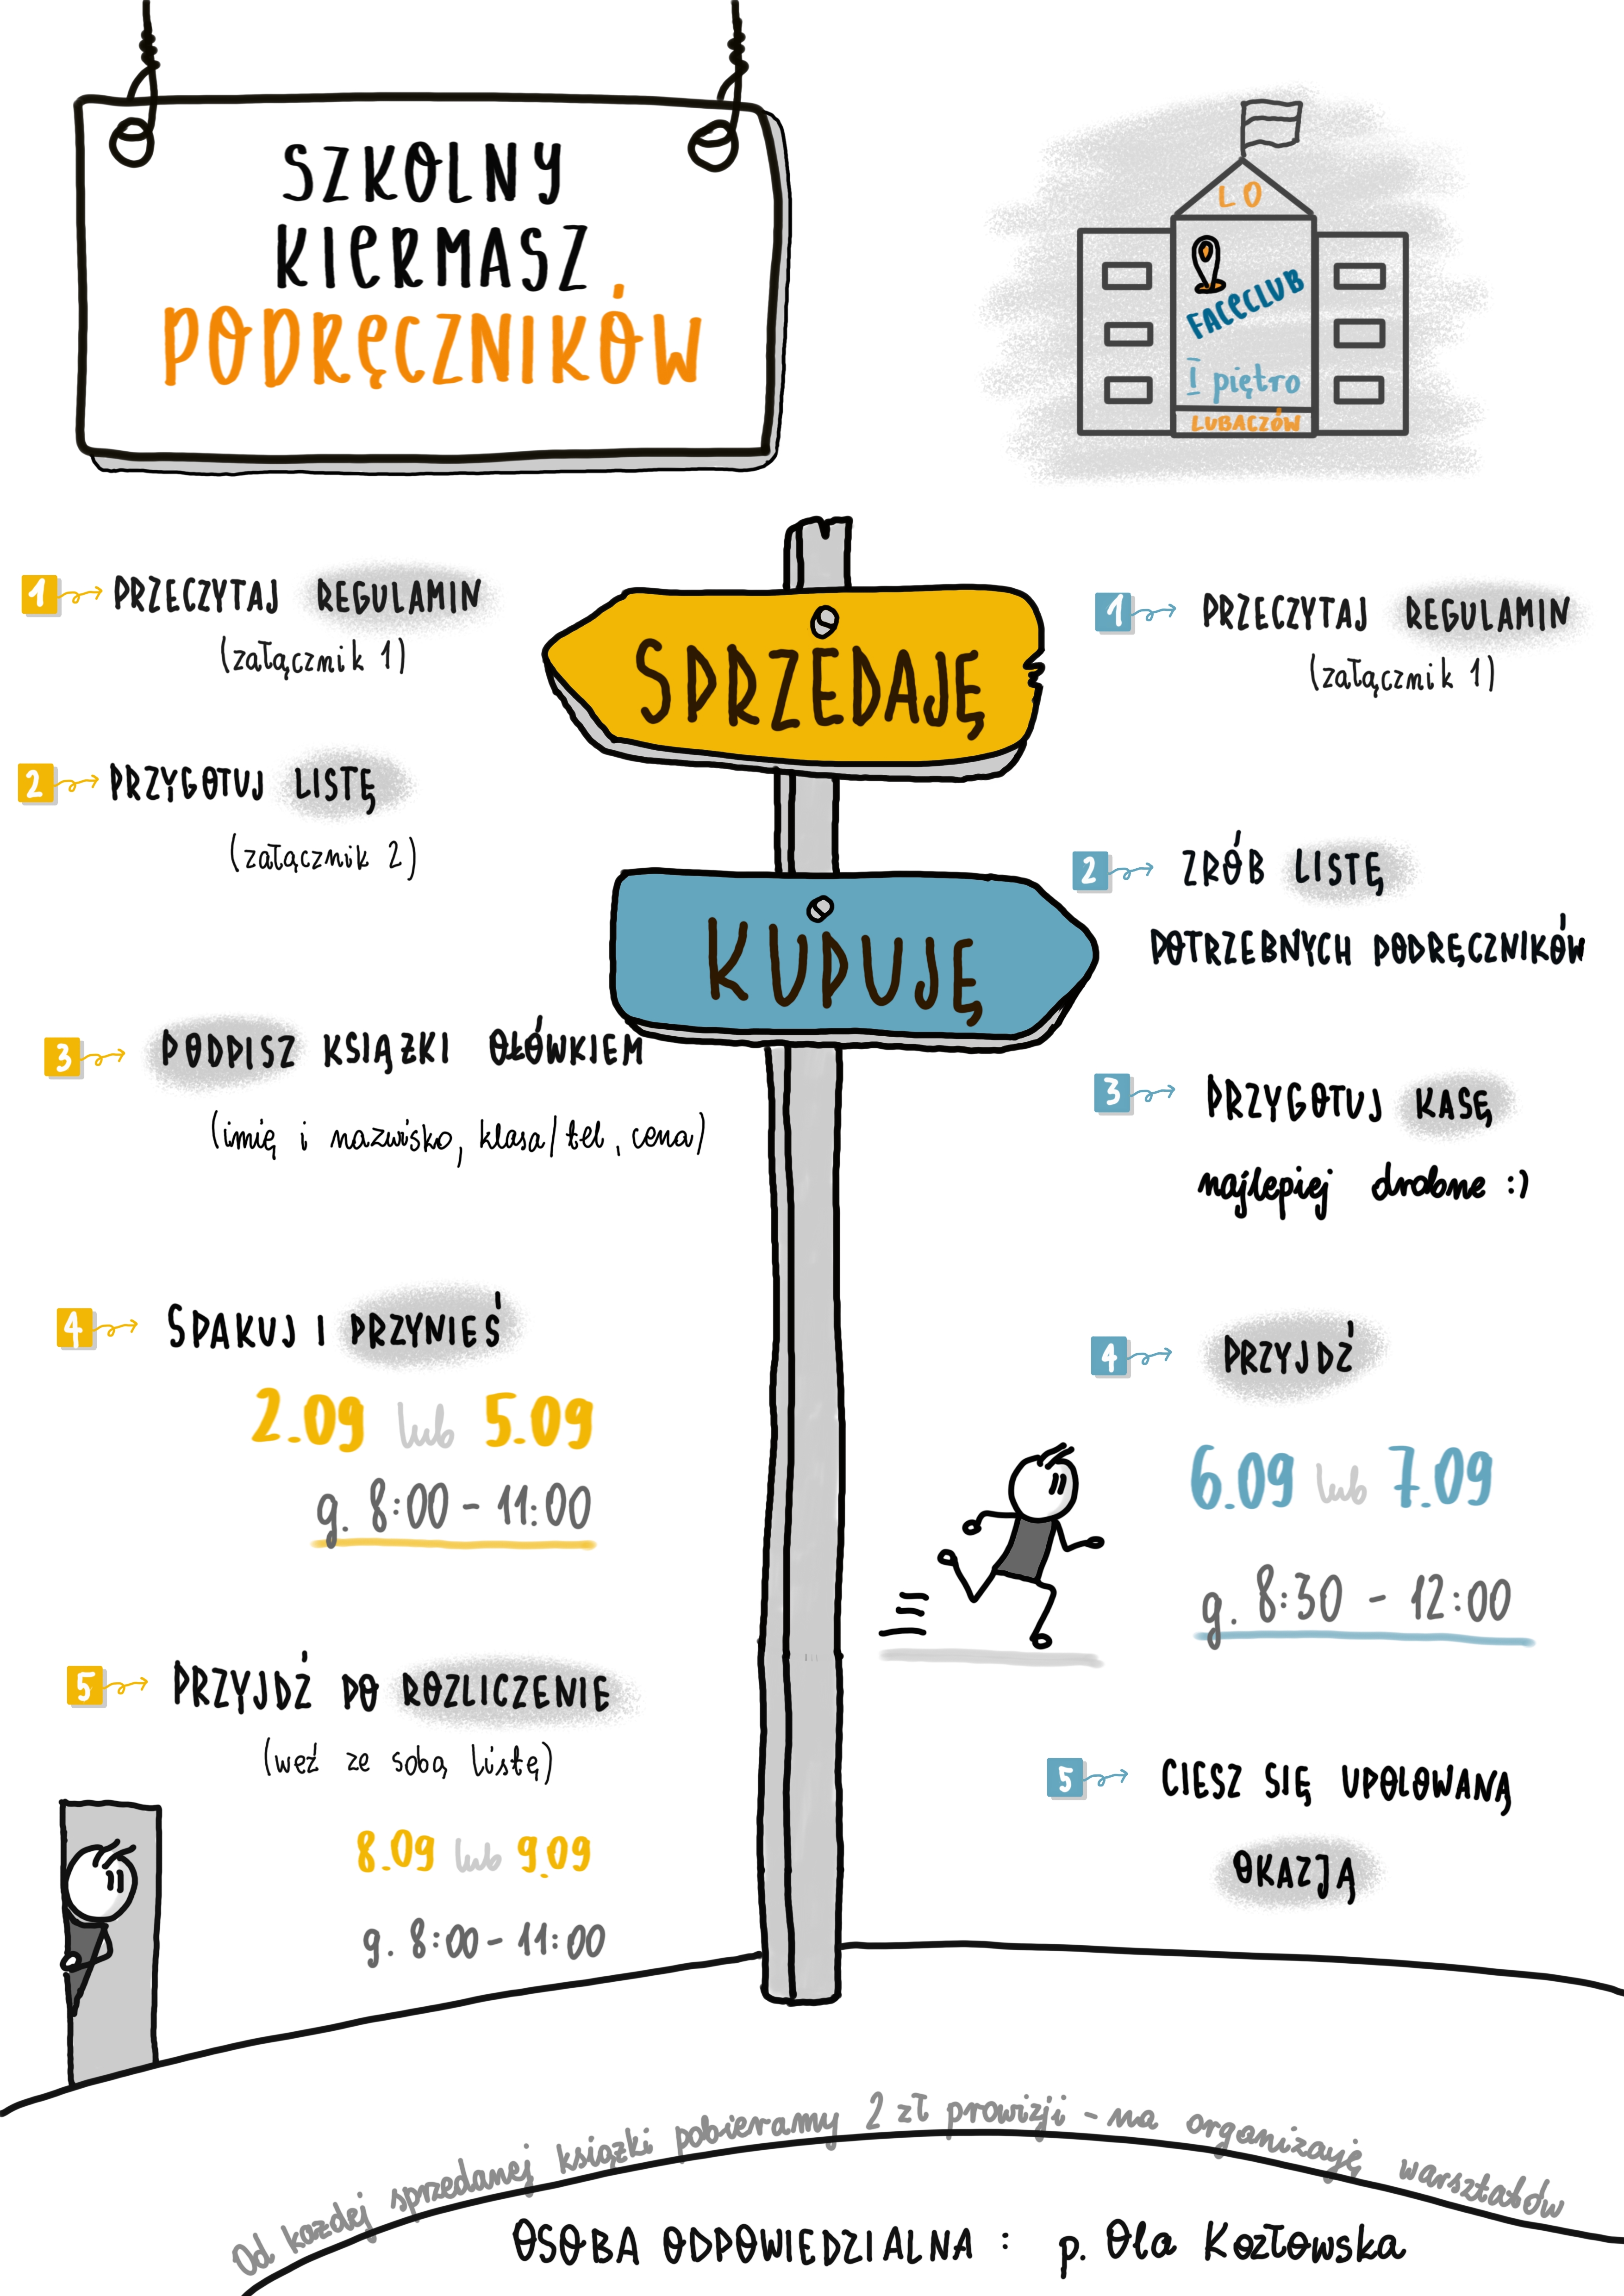 SZKOLNY
KIERMASZ
PODRĘCZNIKÓW
LO
FACECLUB
I piętro
LUBACZÓW
SPRZEDAJĘ
1 PRZECZYTAJ REGULAMIN
(załącznik 1)
2 PRZYGOTUJ LISTĘ
(załącznik 2)
3 PODPISZ KSIĄŻKI OŁÓWKIEM
(imię i nazwisko, klasa/tel, cena)
4 SPAKUJ I PRZYNIEŚ
2.09 lub 5.09
g. 8:00 - 11:00
5 PRZYJDŹ PO ROZLICZENIE
(weź ze sobą listę)
8.09 lub 9.09
g. 8:00 - 11:00
KUPUJĘ
1 PRZECZYTAJ REGULAMIN
(załącznik 1)
2 ZRÓB LISTĘ
POTRZEBNYCH PODRĘCZNIKÓW
3 PRZYGOTUJ KASĘ
najlepiej drobne :)
4 PRZYJDŹ
6.09 lub 7.09
g. 8:30 - 12:00
5 CIESZ SIĘ UPOLOWANĄ
OKAZJĄ
Od każdej sprzedanej książki pobieramy 2 zł prowizji - na organizację warsztatów
OSOBA ODPOWIEDZIALNA : p. Ola Kozłowska